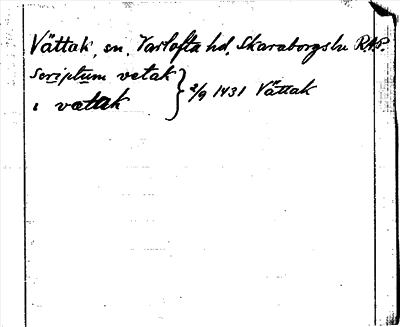 Vättak, sn, Vartofta hd, Skaraborgs ln RAP.
scriptum vetak
i vætak } 2/9 1431 Vättak